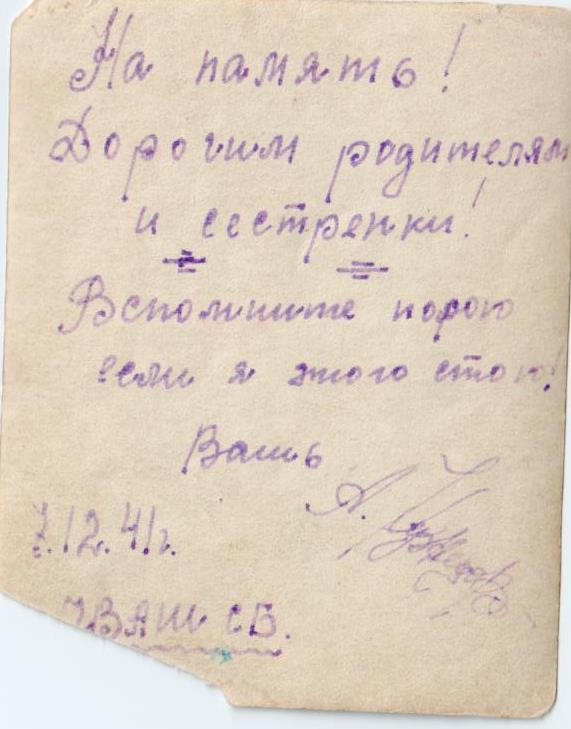 На память!
Дорогим родителям
и сестренки!
Вспомните порою
если я этого стою!
Вашь
А.
7.12.41г.